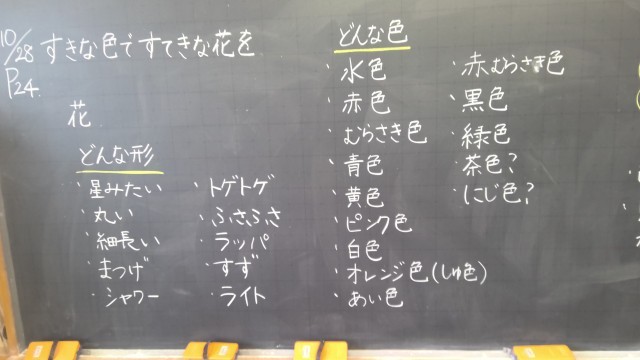 10/28 すきな色ですてきな花を
P24.
花
どんな形
・星みたい
・丸い
・細長い
・まつげ
・シャワー
・トゲトゲ
・ふさふさ
・ラッパ
・すず
・ライト
どんな色
・水色
・赤色
・むらさき色
・青色
・黄色
・ピンク色
・白色
・オレンジ色(しゅ色)
・あい色
・赤むらさき色
・黒色
・緑色
・茶色?
・にじ色?